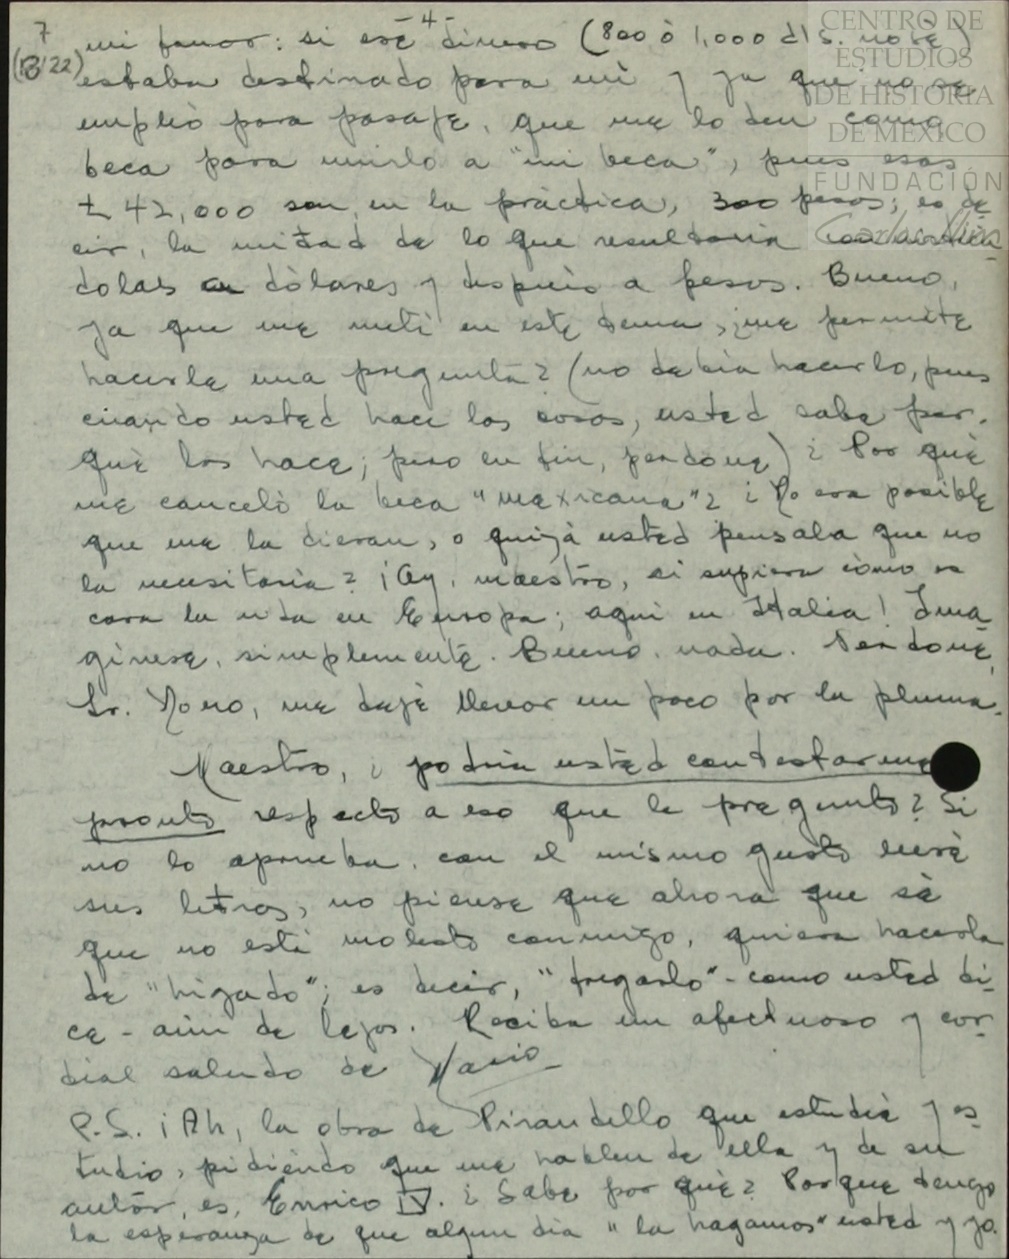 - 4 -
7
(B/22)
CENTRO DE
ESTUDIOS
DE HISTORIA
DE MEXICO
FUNDACIÓN
Carlos Slim
mi favor: si ese dinero (800 ò 1,000 dls. no sè)
estaba destinado para mì y ya que no se
empleò para pasaje, que me lo den como
beca para unirlo a "mi beca", pues esas
£ 42,000 son, en la pràctica, 300 pesos; es de-
cir, la mitad de lo que resultarìa
dolas en dòlares y despuès a pesos. Bueno,
ya que me metì en este tema, ¿me permite
hacerle una pregunta? (no debìa hacerlo, pues
cuando usted hace las cosas, usted sabe por-
què las hace; pero en fin, perdone) ¿Por què
me cancelò la beca "mexicana"? ¿No era posible
que me la dieran, o quizà usted pensaba que no
la necesitarìa? ¡Ay, maestro, si supiera còmo es
cara la vida en Europa; aquì en Italia! Ima-
gìnese, simplemente. Bueno, nada. Perdone,
Sr. Novo, me dejè llevar un poco por la pluma.
Maestro, ¿podrìa usted contestarme
pronto respecto a eso que le pregunto? Si
no lo aprueba, con el mismo gusto leerè
sus letras, no piense que ahora que sè
que no està molesto conmigo, quiera hacerla
de "hìgado"; es decir, "fregarlo" - como usted di-
ce - aùn de lejos. Reciba un afectuoso y cor-
dial saludo de Mario
P.S. ¡Ah, la obra de Pirandello que estudiè y es-
tudio, pidièndo que me hablen de ella y de su
autòr, es, Enrico IV. ¿Sabe por què? Porque tengo
la esperanza de que algun dìa "la hagamos" usted y yo.